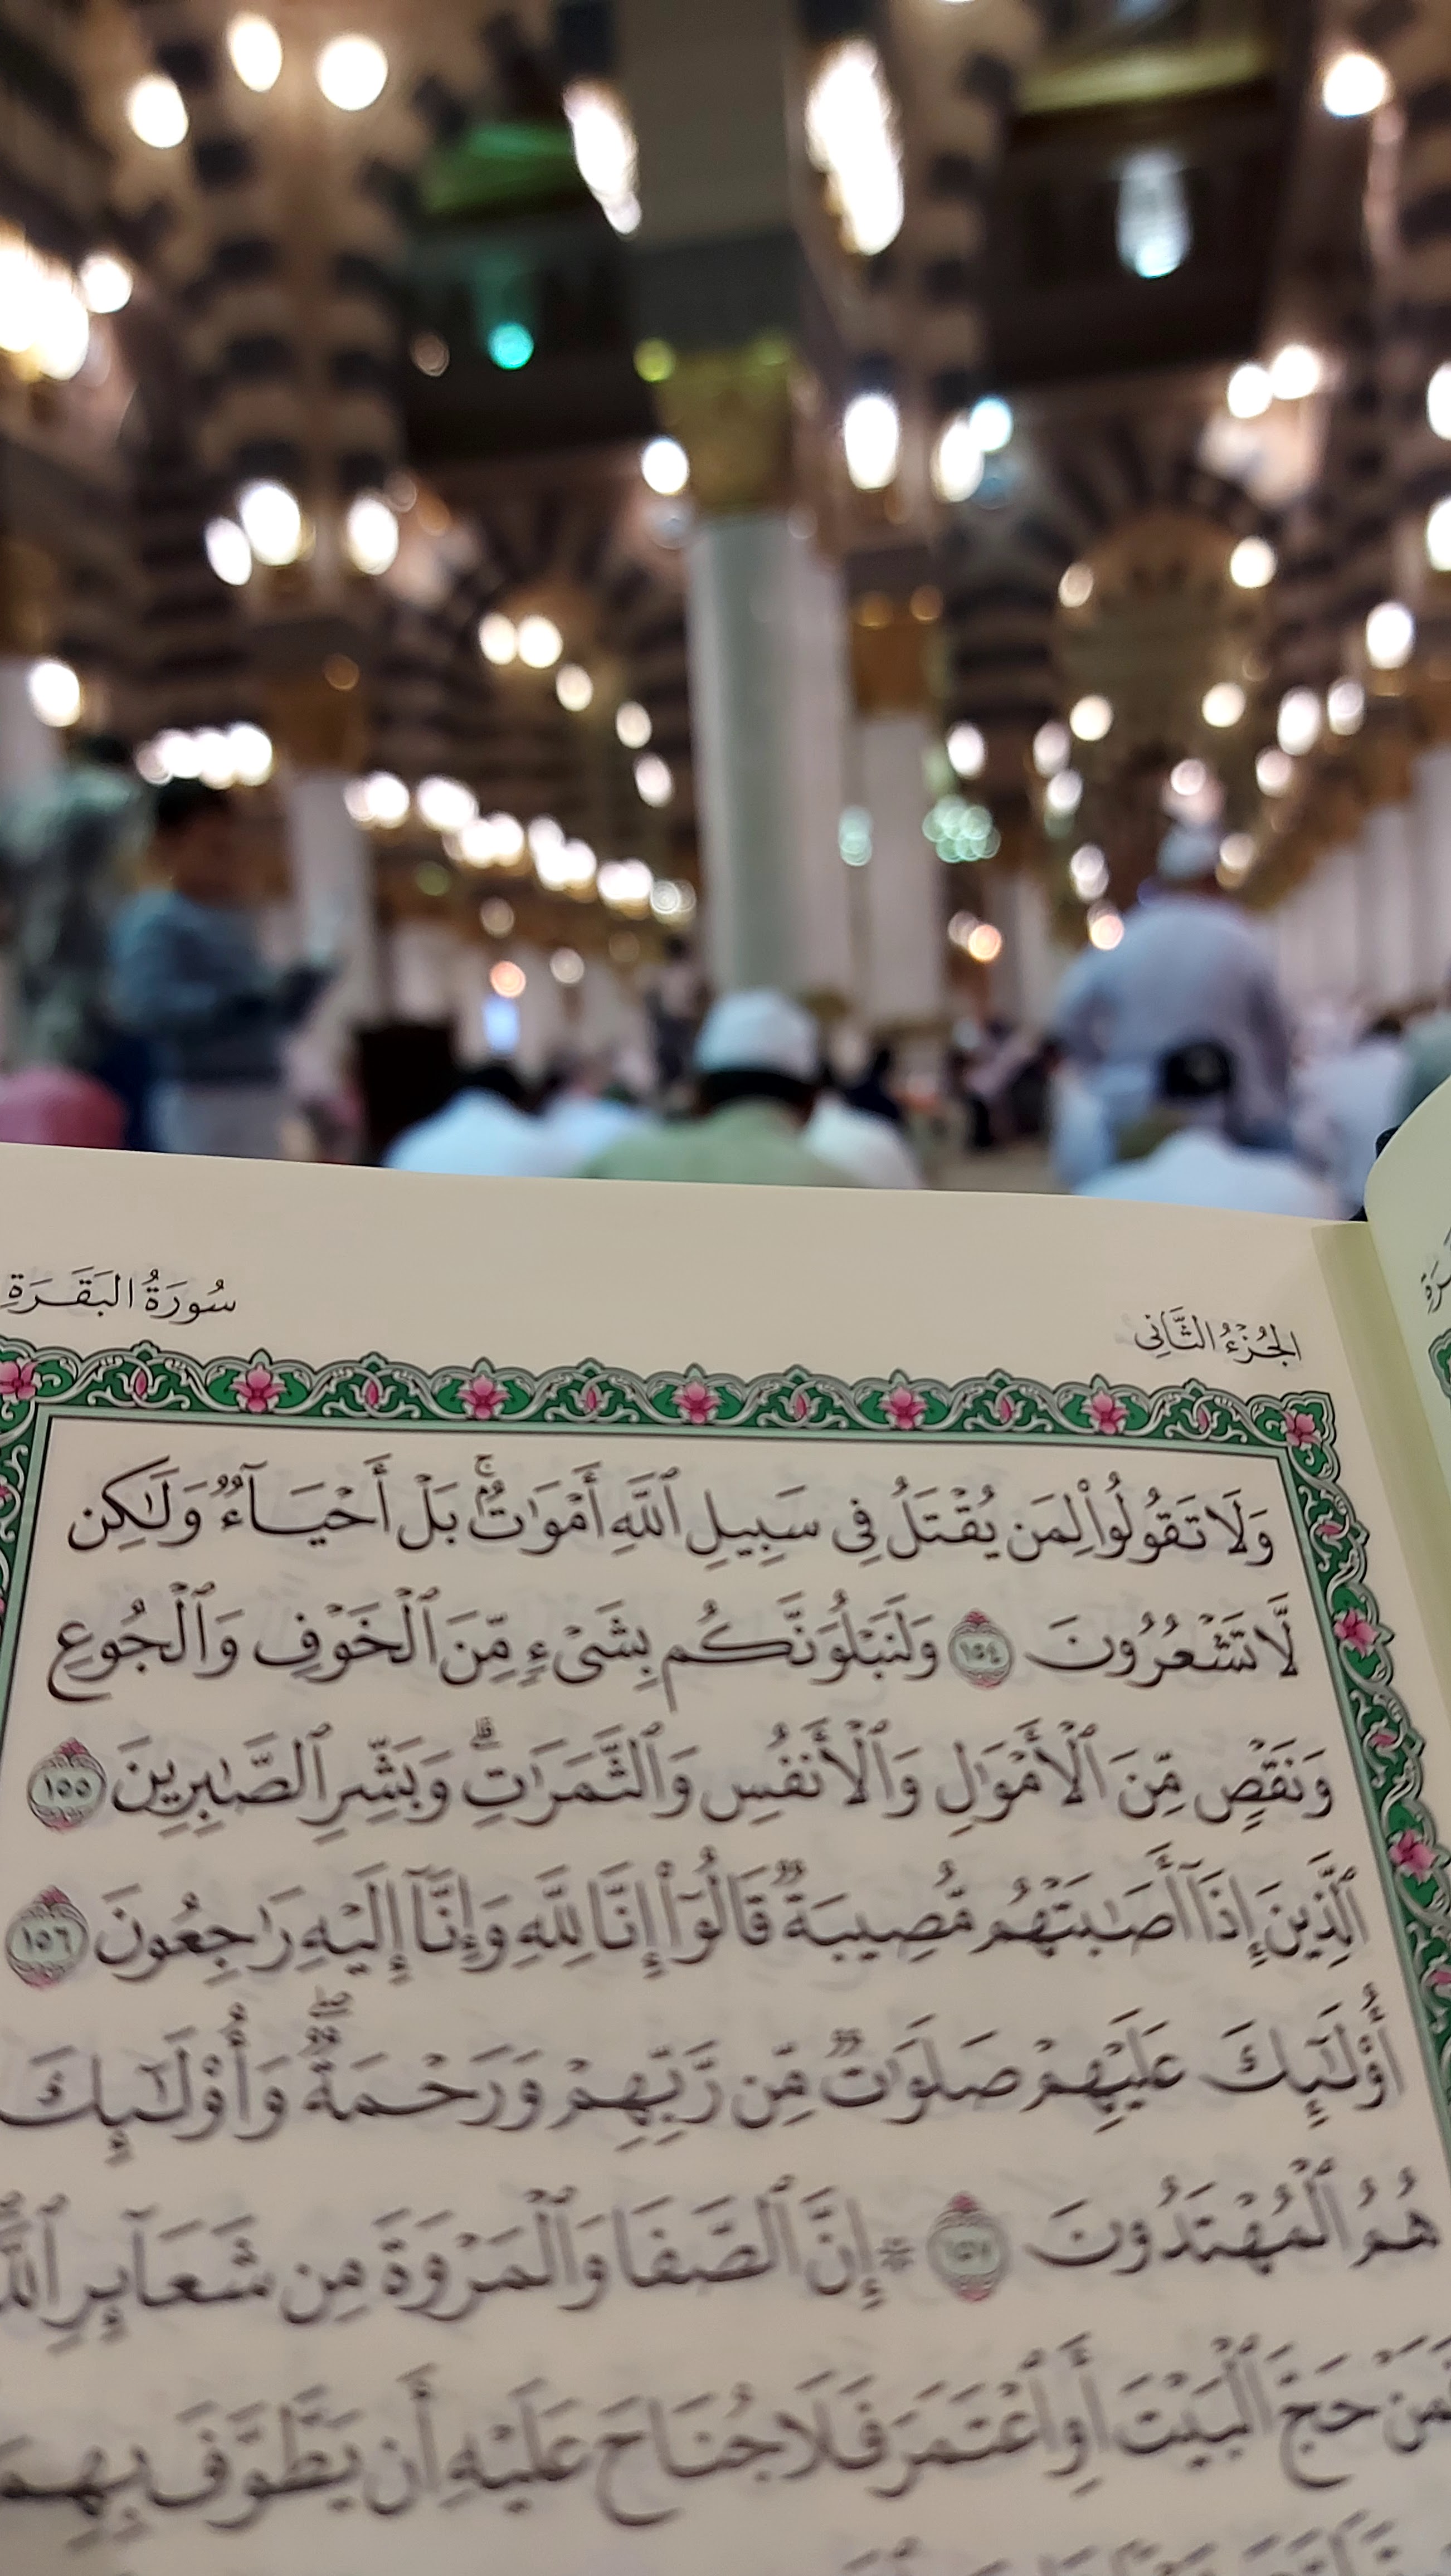 الجُزْءُ الثَّانِي
سُورَةُ البَقَرَةِ
وَلَا تَقُولُوا۟ لِمَن يُقْتَلُ فِى سَبِيلِ ٱللَّهِ أَمْوَٰتٌۢ ۚ بَلْ أَحْيَآءٌ وَلَـٰكِن
لَّا تَشْعُرُونَ ١٥٤ وَلَنَبْلُوَنَّكُم بِشَىْءٍ مِّنَ ٱلْخَوْفِ وَٱلْجُوعِ
وَنَقْصٍ مِّنَ ٱلْأَمْوَٰلِ وَٱلْأَنفُسِ وَٱلثَّمَرَٰتِ ۗ وَبَشِّرِ ٱلصَّـٰبِرِينَ ١٥٥
ٱلَّذِينَ إِذَآ أَصَـٰبَتْهُم مُّصِيبَةٌ قَالُوٓا۟ إِنَّا لِلَّهِ وَإِنَّآ إِلَيْهِ رَٰجِعُونَ ١٥٦
أُو۟لَـٰٓئِكَ عَلَيْهِمْ صَلَوَٰتٌ مِّن رَّبِّهِمْ وَرَحْمَةٌ ۖ وَأُو۟لَـٰٓئِكَ
هُمُ ٱلْمُهْتَدُونَ ١٥٧ ۞ إِنَّ ٱلصَّفَا وَٱلْمَرْوَةَ مِن شَعَآئِرِ ٱللَّهِ
فَمَنْ حَجَّ ٱلْبَيْتَ أَوِ ٱعْتَمَرَ فَلَا جُنَاحَ عَلَيْهِ أَن يَطَّوَّفَ بِهِمَا